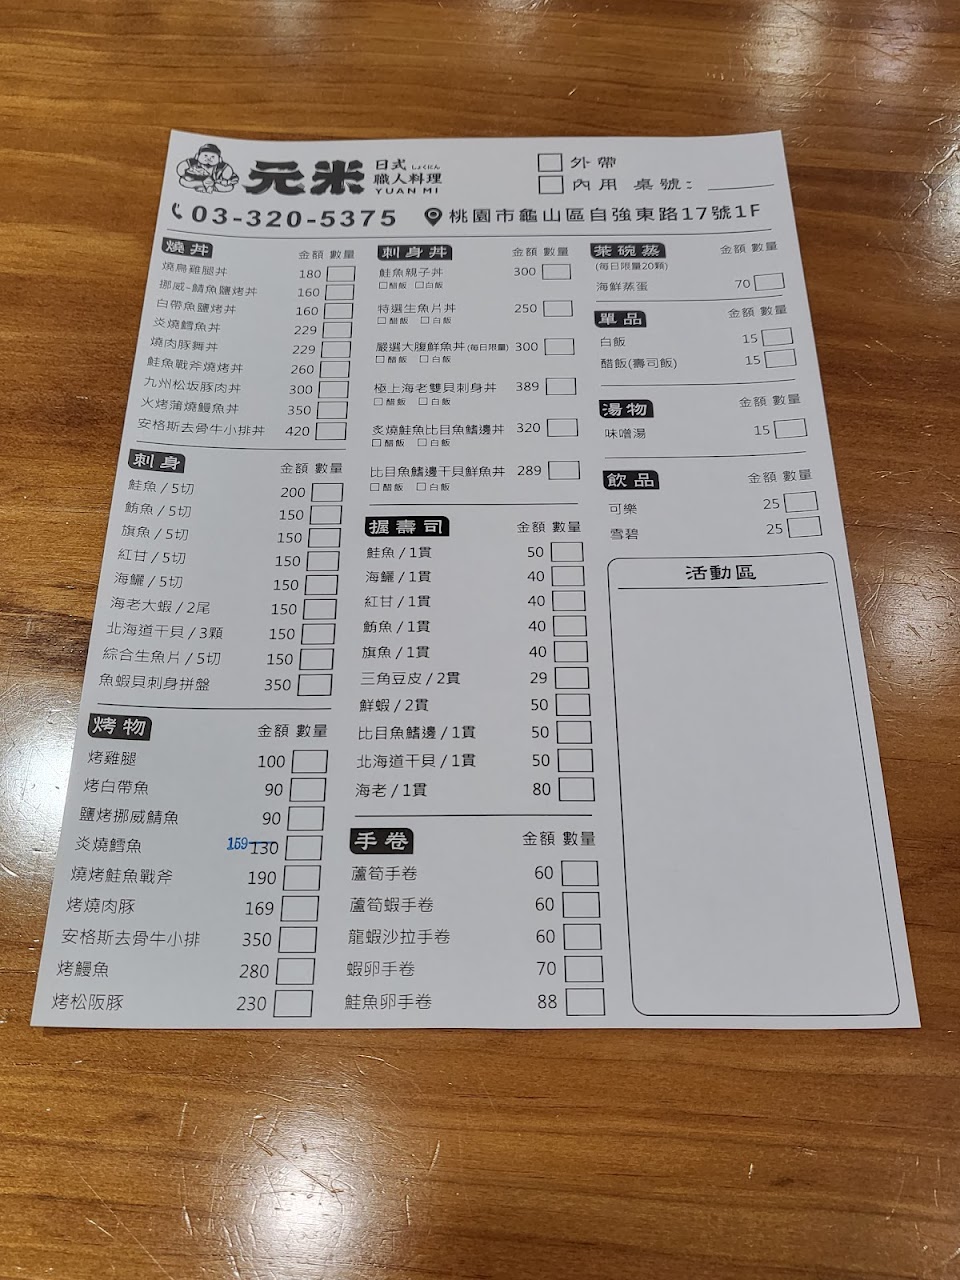 元米 日式 しょくにん
職人料理
YUAN MI
外帶
內用 桌號:
03-320-5375 桃園市龜山區自強東路17號1F
燒丼 金額 數量
燒烏雞腿丼 180
挪威~鯖魚鹽烤丼 160
白帶魚鹽烤丼 160
炎燒鱈魚丼 229
燒肉豚舞丼 229
鮭魚戰斧燒烤丼 260
九州松坂豚肉丼 300
火烤蒲燒鰻魚丼 350
安格斯去骨牛小排丼 420
刺身 金額 數量
鮭魚/5切 200
鮪魚/5切 150
旗魚/5切 150
紅甘/5切 150
海鱺/5切 150
海老大蝦/2尾 150
北海道干貝/3顆 150
綜合生魚片/5切 150
魚蝦貝刺身拼盤 350
烤物 金額 數量
烤雞腿 100
烤白帶魚 90
鹽烤挪威鯖魚 90
炎燒鱈魚 159 130
燒烤鮭魚戰斧 190
烤燒肉豚 169
安格斯去骨牛小排 350
烤鰻魚 280
烤松阪豚 230
刺身丼 金額 數量
鮭魚親子丼 300
醋飯 白飯
特選生魚片丼 250
醋飯 白飯
嚴選大腹鮮魚丼(每日限量) 300
醋飯 白飯
極上海老雙貝刺身丼 389
醋飯 白飯
炙燒鮭魚比目魚鰭邊丼 320
醋飯 白飯
比目魚鰭邊干貝鮮魚丼 289
醋飯 白飯
握壽司 金額 數量
鮭魚/1貫 50
海鱺/1貫 40
紅甘/1貫 40
鮪魚/1貫 40
旗魚/1貫 40
三角豆皮/2貫 29
鮮蝦/2貫 50
比目魚鰭邊/1貫 50
北海道干貝/1貫 50
海老/1貫 80
手卷 金額 數量
蘆筍手卷 60
蘆筍蝦手卷 60
龍蝦沙拉手卷 60
蝦卵手卷 70
鮭魚卵手卷 88
茶碗蒸 金額 數量
(每日限量20顆)
海鮮蒸蛋 70
單品 金額 數量
白飯 15
醋飯(壽司飯) 15
湯物 金額 數量
味噌湯 15
飲品 金額 數量
可樂 25
雪碧 25
活動區